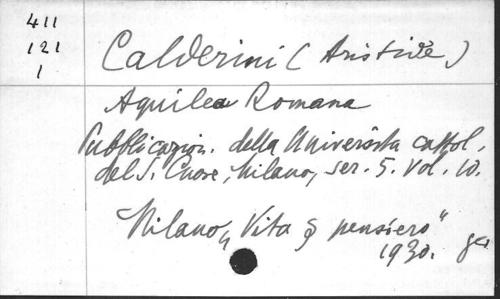 411
121
1
Calderini (Aristide)
Aquileia Romana
Pubblicazion. della Università cattol.
del S. Cuore, Milano, ser. 5. vol. 10.
Milano, "Vita e pensiero"
1930.